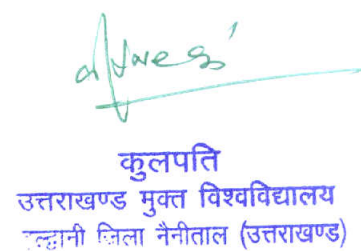 कुलपति
उत्तराखण्ड मुक्त विश्वविद्यालय
हल्द्वानी जिला नैनीताल (उत्तराखण्ड)